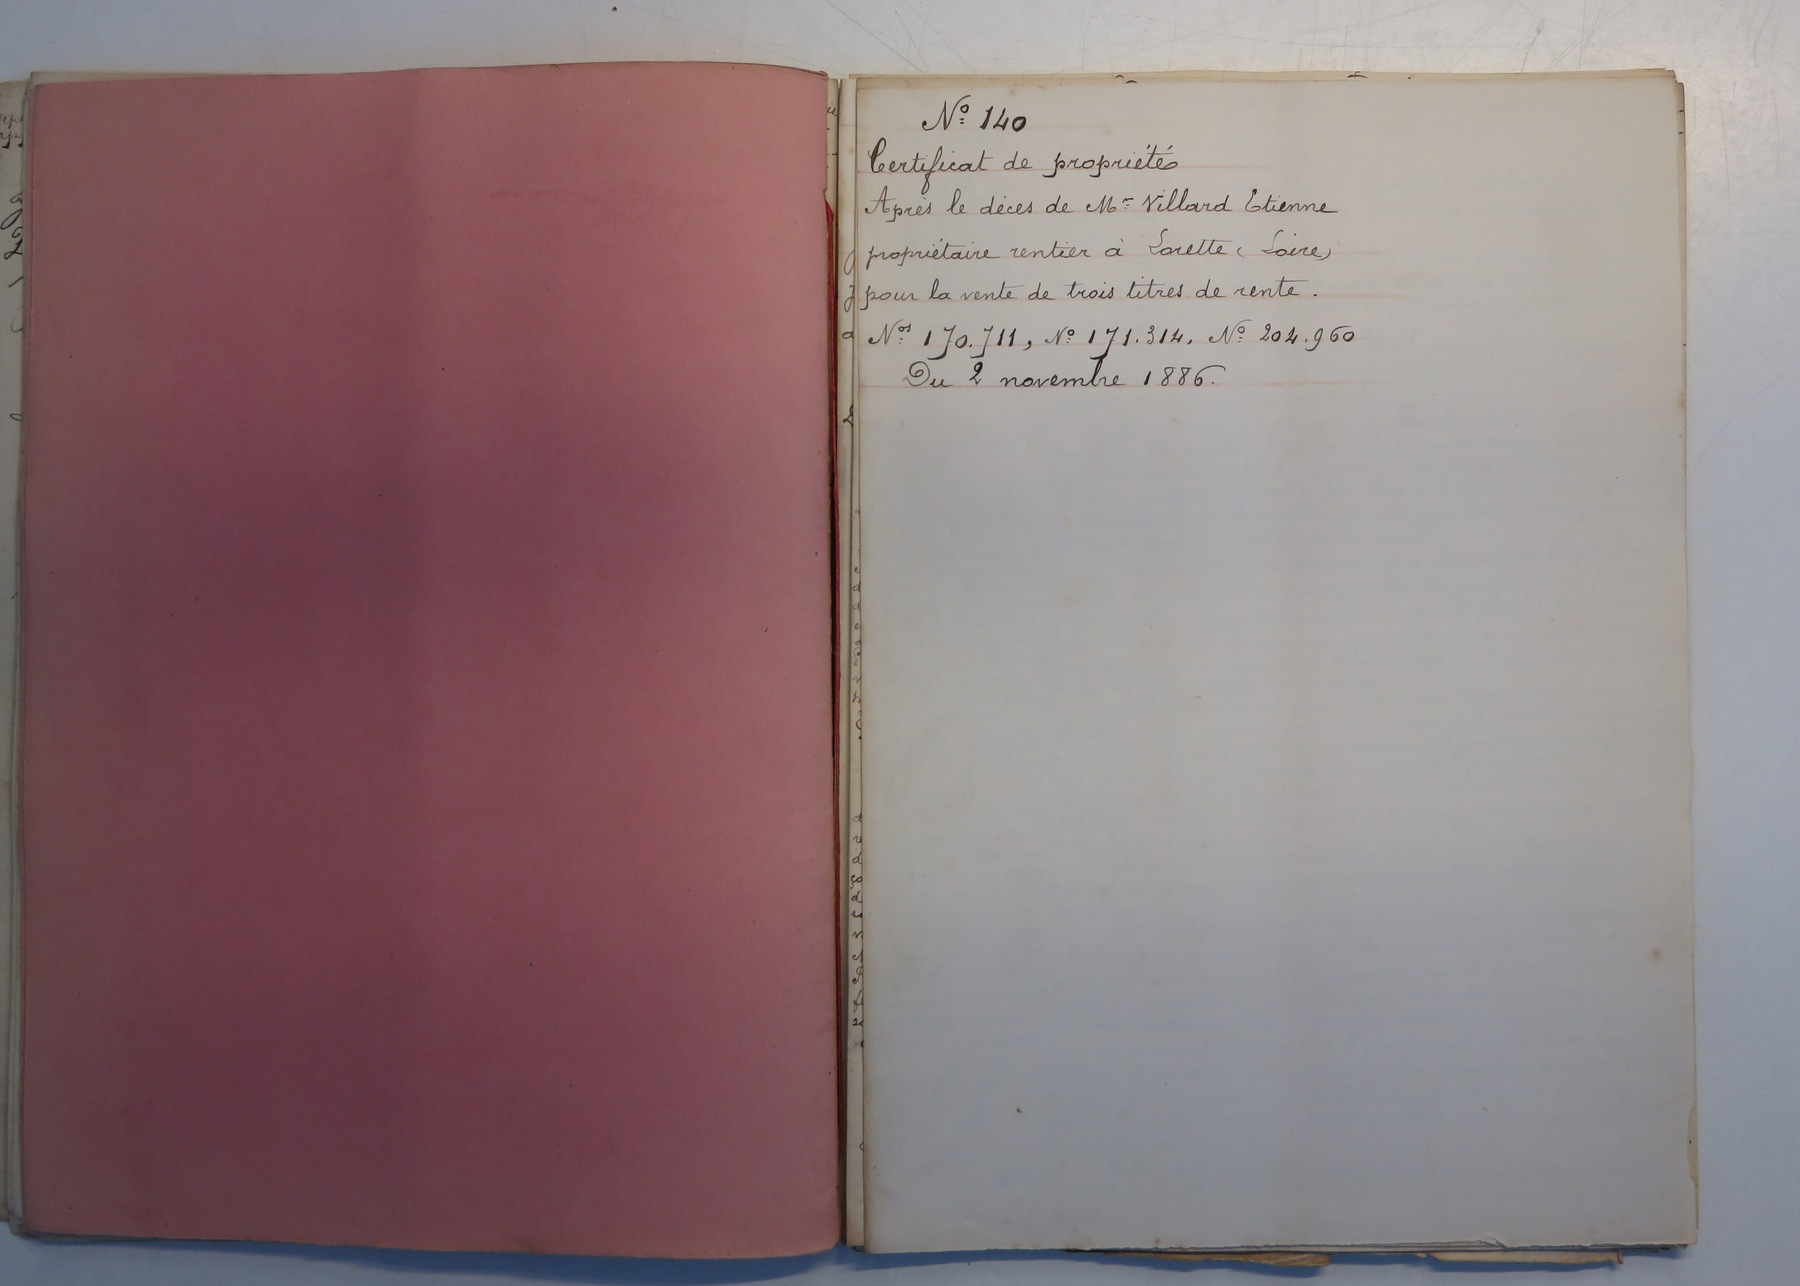 Nº 140
Certificat de propriété
Après le décès de Mr Villard Etienne
propriétaire rentier à Lorette (Loire)
pour la vente de trois titres de rente.
Nos 170.711, Nº 171.314, Nº 204.960
Du 2 novembre 1886.